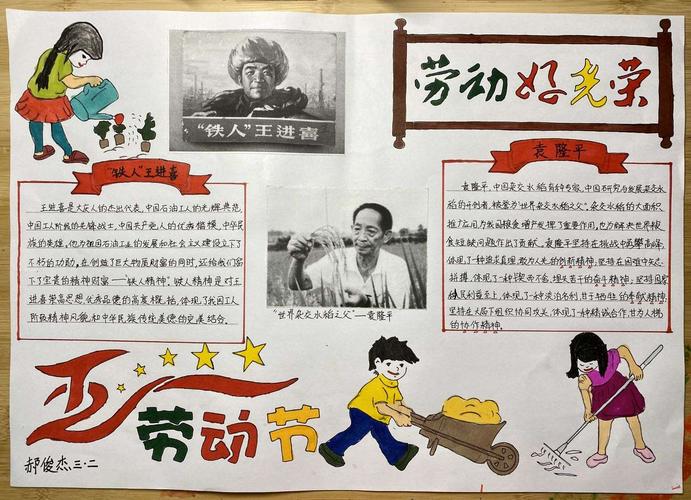 劳动最光荣
"铁人"王进喜
"铁人"王进喜
王进喜是大庆人的杰出代表,中国石油工人的光辉典范,
中国工人阶级的先锋战士,中国共产党人的优秀楷模,中华民
族的英雄。他为祖国石油工业的发展和社会主义建设立下了
不朽的功勋,在创造了巨大物质财富的同时,还给我们留
下了宝贵的精神财富——铁人精神。铁人精神是对王
进喜崇高思想,优秀品德的高度概括,体现了我国工人
阶级精神风貌和中华民族传统美德的完美结合。
袁隆平
袁隆平,中国杂交水稻育种专家,中国研究与发展杂交水
稻的开创者,被誉为"世界杂交水稻之父"。杂交水稻的大面积
推广应用为我国粮食增产发挥了重要作用,也为解决世界粮
食短缺问题作出了贡献。袁隆平坚持在挑战中攀高峰,
体现了一种追求真理,敢为人先的创新精神;坚持在困境中中
拼搏,体现了一种锲而不舍,埋头苦干的奋斗精神;坚持国家
人民利益至上,体现了一种淡泊名利,甘于牺牲的奉献精神;
坚持在大局下组织协同攻关,体现了一种精诚合作,甘为人梯
的协作精神。
"世界杂交水稻之父"——袁隆平
五一
劳动节
郝俊杰,三·二